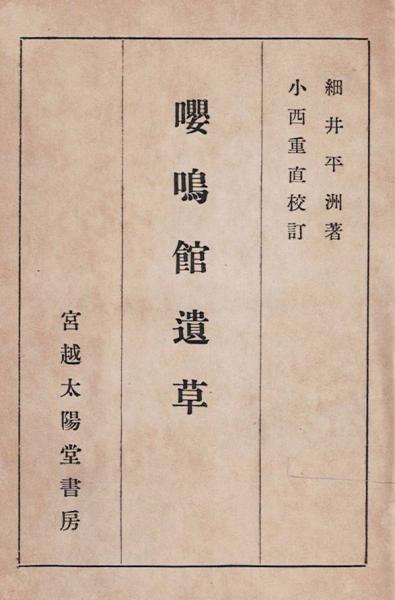 細井平洲著
小西重直校訂
嚶鳴館遺草
宮越太陽堂書房